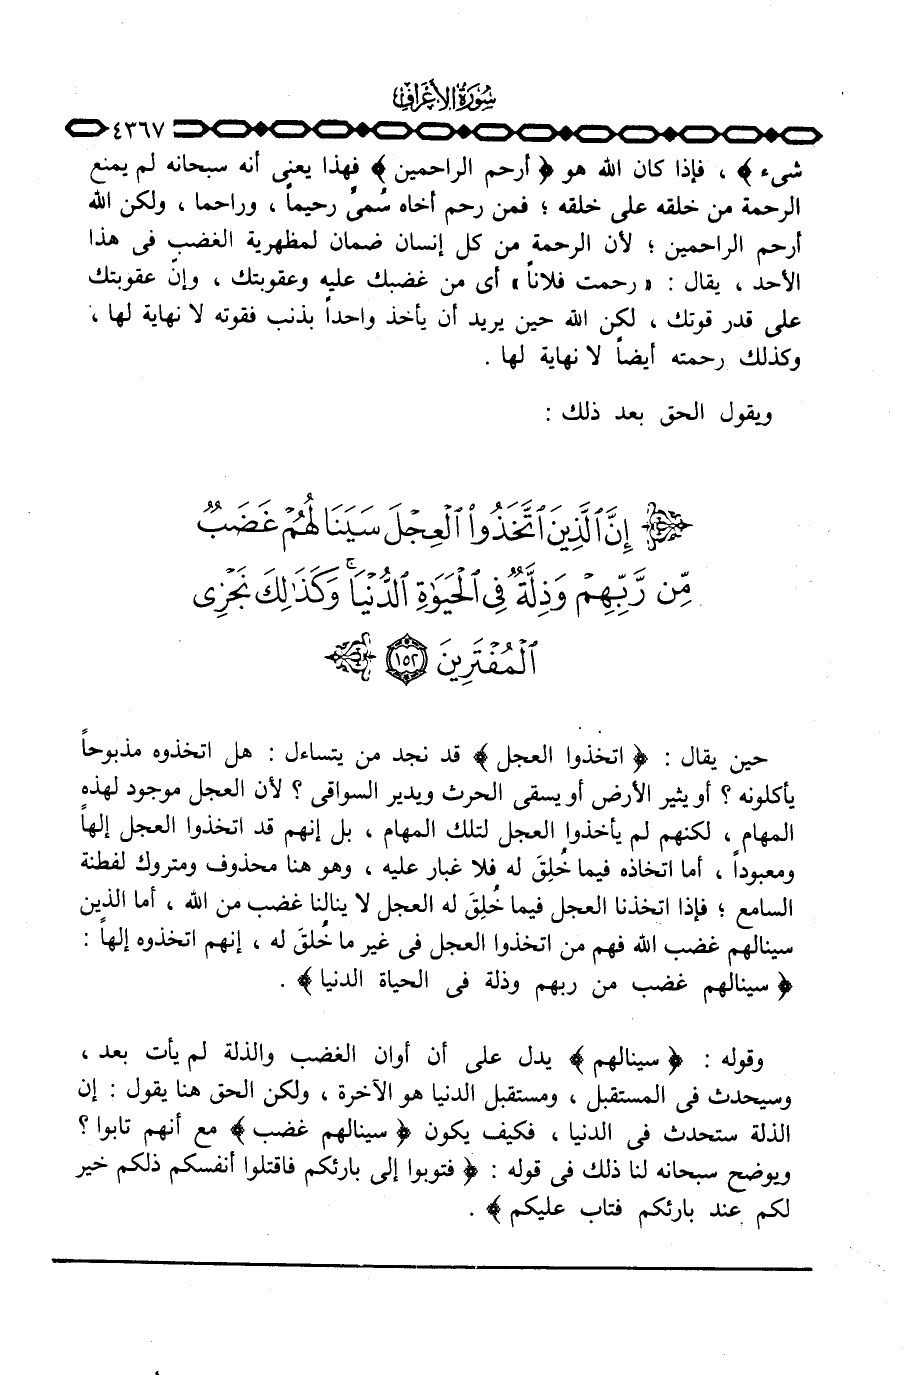 سورة الأعراف
٤٣٦٧
شىء ﴾ ، فإذا كان الله هو ﴿ أرحم الراحمين ﴾ فهذا يعنى أنه سبحانه لم يمنع
الرحمة من خلقه على خلقه ؛ فمن رحم أخاه سُمىّ رحيماً ، وراحما ، ولكن الله
أرحم الراحمين ؛ لأن الرحمة من كل إنسان ضمان لمظهرية الغضب فى هذا
الأحد ، يقال : « رحمت فلاناً » أى من غضبك عليه وعقوبتك ، وإنّ عقوبتك
على قدر قوتك ، لكن الله حين يريد أن يأخذ واحداً بذنب فقوته لا نهاية لها ،
وكذلك رحمته أيضاً لا نهاية لها .
ويقول الحق بعد ذلك :
﴿ إِنَّ ٱلَّذِينَ ٱتَّخَذُوا۟ ٱلْعِجْلَ سَيَنَالُهُمْ غَضَبٌ
مِّن رَّبِّهِمْ وَذِلَّةٌ فِى ٱلْحَيَوٰةِ ٱلدُّنْيَا ۚ وَكَذَٰلِكَ نَجْزِى
ٱلْمُفْتَرِينَ ١٥٢ ﴾
حين يقال : ﴿ اتخذوا العجل ﴾ قد نجد من يتساءل : هل اتخذوه مذبوحاً
يأكلونه ؟ أو يثير الأرض أو يسقى الحرث ويدير السواقى ؟ لأن العجل موجود لهذه
المهام ، لكنهم لم يأخذوا العجل لتلك المهام ، بل إنهم قد اتخذوا العجل إلهاً
ومعبوداً ، أما اتخاذه فيما خُلِقَ له فلا غبار عليه ، وهو هنا محذوف ومتروك لفطنة
السامع ؛ فإذا اتخذنا العجل فيما خُلِقَ له العجل لا ينالنا غضب من الله ، أما الذين
سينالهم غضب الله فهم من اتخذوا العجل فى غير ما خُلقَ له ، إنهم اتخذوه إلهاً :
﴿ سينالهم غضب من ربهم وذلة فى الحياة الدنيا ﴾ .
وقوله : ﴿ سينالهم ﴾ يدل على أن أوان الغضب والذلة لم يأت بعد ،
وسيحدث فى المستقبل ، ومستقبل الدنيا هو الآخرة ، ولكن الحق هنا يقول : إن
الذلة ستحدث فى الدنيا ، فكيف يكون ﴿ سينالهم غضب ﴾ مع أنهم تابوا ؟
ويوضح سبحانه لنا ذلك فى قوله : ﴿ فتوبوا إلى بارئكم فاقتلوا أنفسكم ذلكم خير
لكم عند بارئكم فتاب عليكم ﴾ .